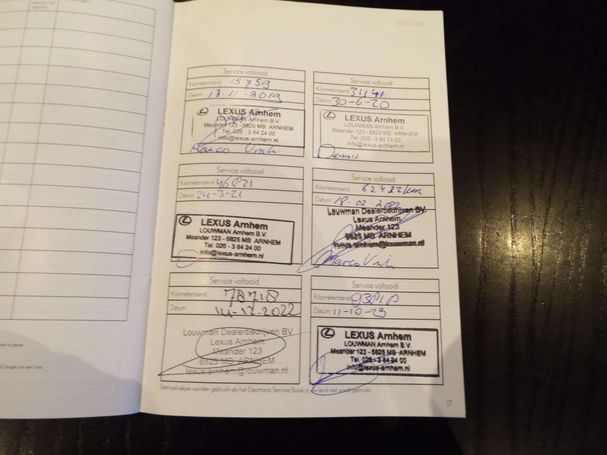 Service voltooid
Kilometerstand 15759
Datum: 13-11-2019
LEXUS Arnhem
LOUWMAN Arnhem B.V.
Meander 123 - 6825 MB ARNHEM
Tel. 026 - 3 84 24 00
info@lexus-arnhem.nl
Service voltooid
Kilometerstand 31191
Datum: 30-6-20
LEXUS Arnhem
LOUWMAN Arnhem B.V.
Meander 123 - 6825 MB ARNHEM
Tel. 026 - 3 84 24 00
info@lexus-arnhem.nl
Dennis
Service voltooid
Kilometerstand
Datum: 24-3-21
LEXUS Arnhem
LOUWMAN Arnhem B.V.
Meander 123 - 6825 MB ARNHEM
Tel. 026 - 3 84 24 00
info@lexus-arnhem.nl
Service voltooid
Kilometerstand
Datum: 18-02-2022
Louwman Dealerbedrijven BV
Lexus Arnhem
Meander 123
6825 MB ARNHEM
lexus-arnhem@louwman.nl
Service voltooid
Kilometerstand 78718
Datum: 14-12-2022
Louwman Dealerbedrijven BV
Lexus Arnhem
Meander 123
6825 MB ARNHEM
lexus-arnhem@louwman.nl
Service voltooid
Kilometerstand
Datum: 11-10-23
LEXUS Arnhem
LOUWMAN Arnhem B.V.
Meander 123 - 6825 MB ARNHEM
Tel. 026 - 3 84 24 00
info@lexus-arnhem.nl
Stempelvakjes worden gebruikt als het Electronic Service Book in uw land niet wordt gebruikt.
17